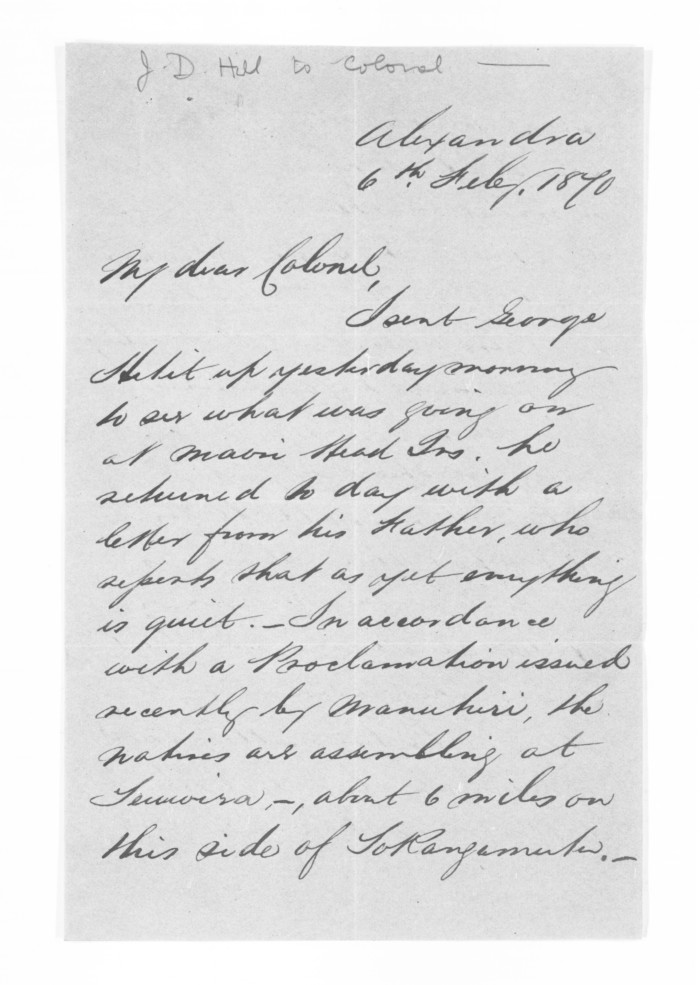 J. D. Hill to Colonel ——
Alexandra
6th. Feby. 1870
My dear Colonel,
I sent George
up yesterday morning
to see what was going on
at Maori Head Qrs. he
returned to day with a
letter from his Father, who
reports that as yet everything
is quiet. — In accordance
with a Proclamation issued
recently by Manuhiri, the
natives are assembling at
—, about 6 miles on
this side of Tokangamutu. —